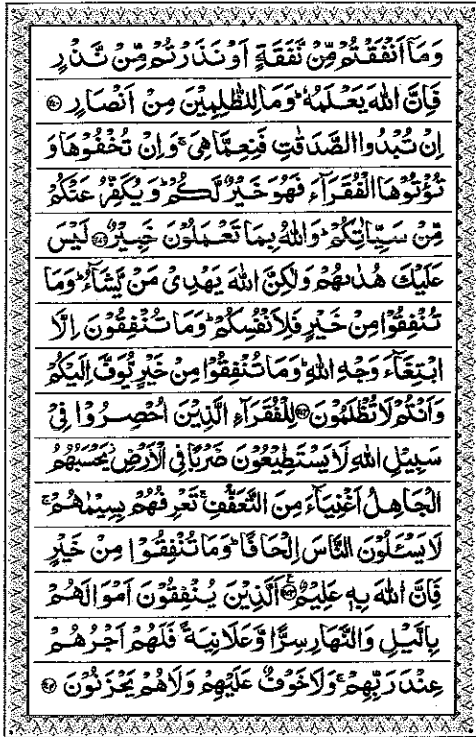 وَمَآ اَنْفَقْتُمْ مِّنْ نَّفَقَةٍ اَوْ نَذَرْتُمْ مِّنْ نَّذْرٍ
فَاِنَّ اللّٰهَ يَعْلَمُهٗ ؕ وَمَا لِلظّٰلِمِيْنَ مِنْ اَنْصَارٍ ﴿۲۷۰﴾
اِنْ تُبْدُوا الصَّدَقٰتِ فَنِعِمَّا هِىَ ۚ وَاِنْ تُخْفُوْهَا وَ
تُؤْتُوْهَا الْفُقَرَآءَ فَهُوَ خَيْرٌ لَّكُمْ ؕ وَيُكَفِّرُ عَنْكُمْ
مِّنْ سَيِّاٰتِكُمْ ؕ وَاللّٰهُ بِمَا تَعْمَلُوْنَ خَبِيْرٌ ﴿۲۷۱﴾ لَيْسَ
عَلَيْكَ هُدٰىهُمْ وَلٰكِنَّ اللّٰهَ يَهْدِىْ مَنْ يَّشَآءُ ؕ وَمَا
تُنْفِقُوْا مِنْ خَيْرٍ فَلِاَنْفُسِكُمْ ؕ وَمَا تُنْفِقُوْنَ اِلَّا
ابْتِغَآءَ وَجْهِ اللّٰهِ ؕ وَمَا تُنْفِقُوْا مِنْ خَيْرٍ يُّوَفَّ اِلَيْكُمْ
وَاَنْتُمْ لَا تُظْلَمُوْنَ ﴿۲۷۲﴾ لِلْفُقَرَآءِ الَّذِيْنَ اُحْصِرُوْا فِىْ
سَبِيْلِ اللّٰهِ لَا يَسْتَطِيْعُوْنَ ضَرْبًا فِى الْاَرْضِ ۫ يَحْسَبُهُمُ
الْجَاهِلُ اَغْنِيَآءَ مِنَ التَّعَفُّفِ ۚ تَعْرِفُهُمْ بِسِيْمٰهُمْ ۚ
لَا يَسْـَٔلُوْنَ النَّاسَ اِلْحَافًا ؕ وَمَا تُنْفِقُوْا مِنْ خَيْرٍ
فَاِنَّ اللّٰهَ بِهٖ عَلِيْمٌ ﴿۲۷۳﴾ اَلَّذِيْنَ يُنْفِقُوْنَ اَمْوَالَهُمْ
بِالَّيْلِ وَالنَّهَارِ سِرًّا وَّعَلَانِيَةً فَلَهُمْ اَجْرُهُمْ
عِنْدَ رَبِّهِمْ ۚ وَلَا خَوْفٌ عَلَيْهِمْ وَلَا هُمْ يَحْزَنُوْنَ ﴿۲۷۴﴾